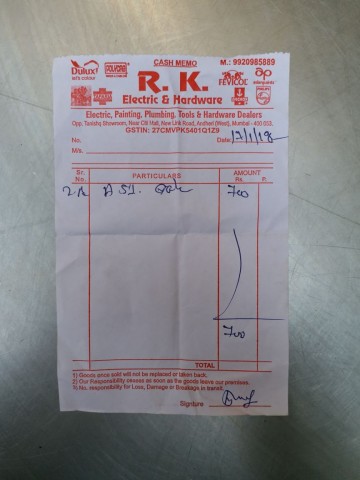 CASH MEMO M.: 9920985889
Dulux
let's colour
POLYCAB
FEVICOL
ap
asianpaints
PHILIPS
R. K.
Electric & Hardware
Electric, Painting, Plumbing, Tools & Hardware Dealers
Opp. Tanishq Showroom, Near Citi Mall, New Link Road, Andheri (West), Mumbai - 400 053.
GSTIN: 27CMVPK5401Q1Z9
No. Date: 17/1/18
M/s.
Sr. No. PARTICULARS AMOUNT Rs. P.
700
700
TOTAL
1) Goods once sold will not be replaced or taken back.
2) Our Responsibility ceases as soon as the goods leave our premises.
3) No. responsibility for Loss, Damage or Breakage in transit.
Signature